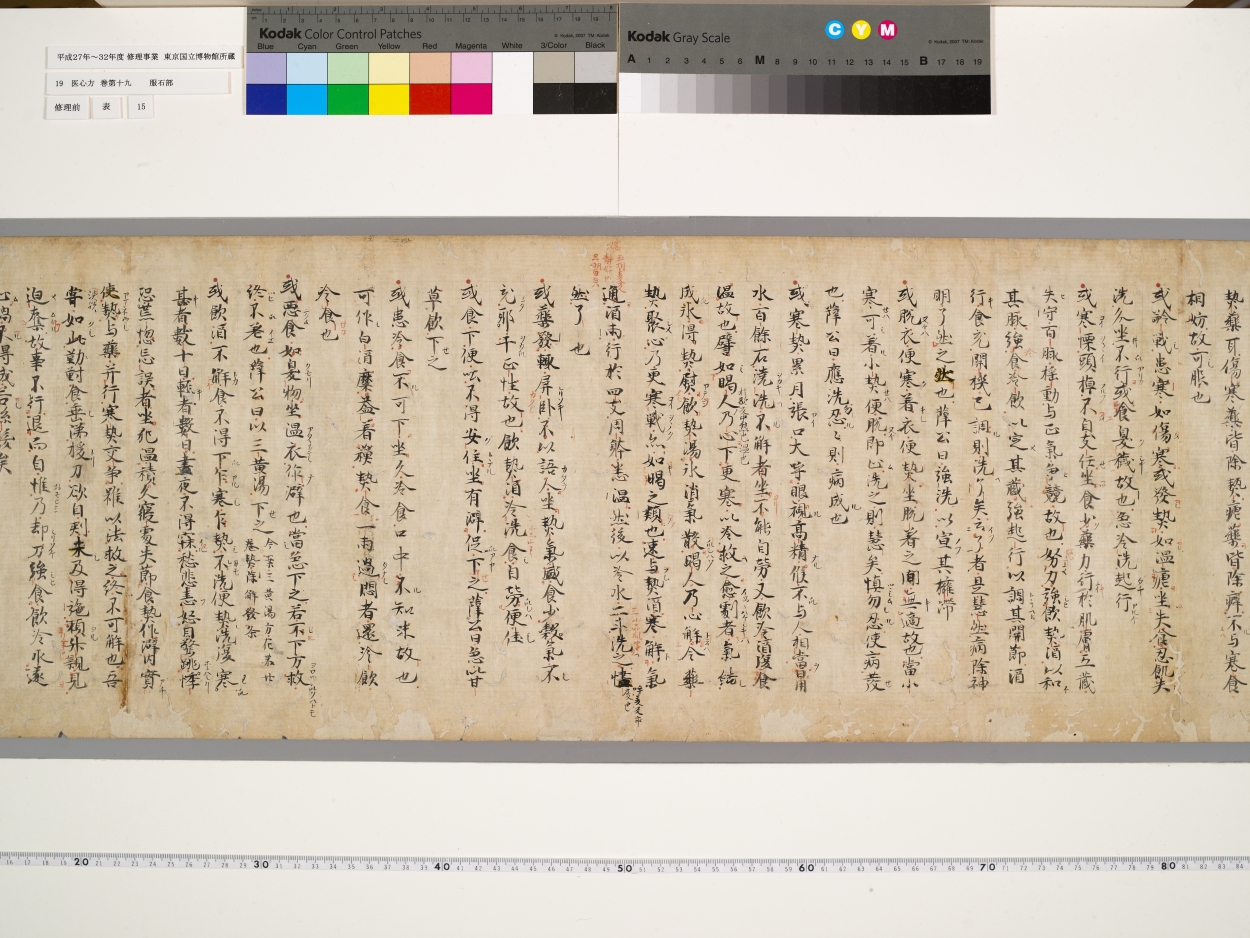 平成27年～32年度 修理事業 東京国立博物館所蔵
19 医心方 巻第十九 服石部
修理前 表 15
Kodak Color Control Patches
Blue Cyan Green Yellow Red Magenta White 3/Color Black
Kodak Gray Scale
C Y M
A 1 2 3 4 5 6 M 8 9 10 11 12 13 14 15 B 17 18 19
熱藥耳傷寒藥皆除熱瘧藥皆除癖不与寒食
相妨故可服也
或齡或患寒如傷寒或發熱如温瘧坐失食忍飢失
洗久坐不行或食臭穢故也急冷洗起行
或寒慄頭掉不自支任坐食少藥力行於肌膚五藏
失守百脉搖動与正氣争競故也努力強飲熱酒以和
其脉強食冷飲以定其藏強起行以調其関節酒
行食充関機已調則洗了矣云了者是慧然病除神
明了然之状也薛公曰強洗以宣其擁滞
或脱衣便寒着衣便熱坐脱着之間無適故也當小
寒可着小熱便脱即止洗之則慧矣慎勿忍使病發
也薛公曰應洗忍之則病成也
或寒熱累月張口大呼眼視高精候不与人相當日用
水百餘石澆洗不解者坐不能自勞又飲冷酒復食
温故也譬如暍人乃心下更寒以冷救之愈劇者氣結
成氷得熱熨飲熱湯氷消氣散暍人乃心解今藥
熱聚心乃更寒戰亦如暍之類也速与熱酒寒解氣
通酒兩行於四支周體悉温然後以冷水二斗洗之盡
然了也
或藥發輙屏卧不以語人坐熱氣盛食少穀氣不
充邪干正性故也飲熱酒冷洗食自勞便佳
或食下便出不得安住坐有澼促下之薛公曰急以甘
草飲下之
或患冷食不可下坐久冷食口中不知味故也
可作白酒糜益着蘓熱食一兩過悶者還冷飲
冷食也
或惡食如臭物坐温衣作澼也當急下之若不下万救
終不差也薛公曰以三黄湯下之
或飲酒不解食不得下乍寒乍熱不洗便熱洗復寒
甚者數十日輕者數日晝夜不得寐愁悲恚怒自驚跳悸
恐恚惚忘誤者坐犯温積久寢處失節食熱作澼内實
使熱与藥并行寒熱交争雖以法救之終不可解也吾
甞如此勤對食垂涕援刀欲自刺未及得施賴外親見
迫奪故事不行退而自惟乃却刀強食飲冷水遂
20 30 40 50 60 70 80